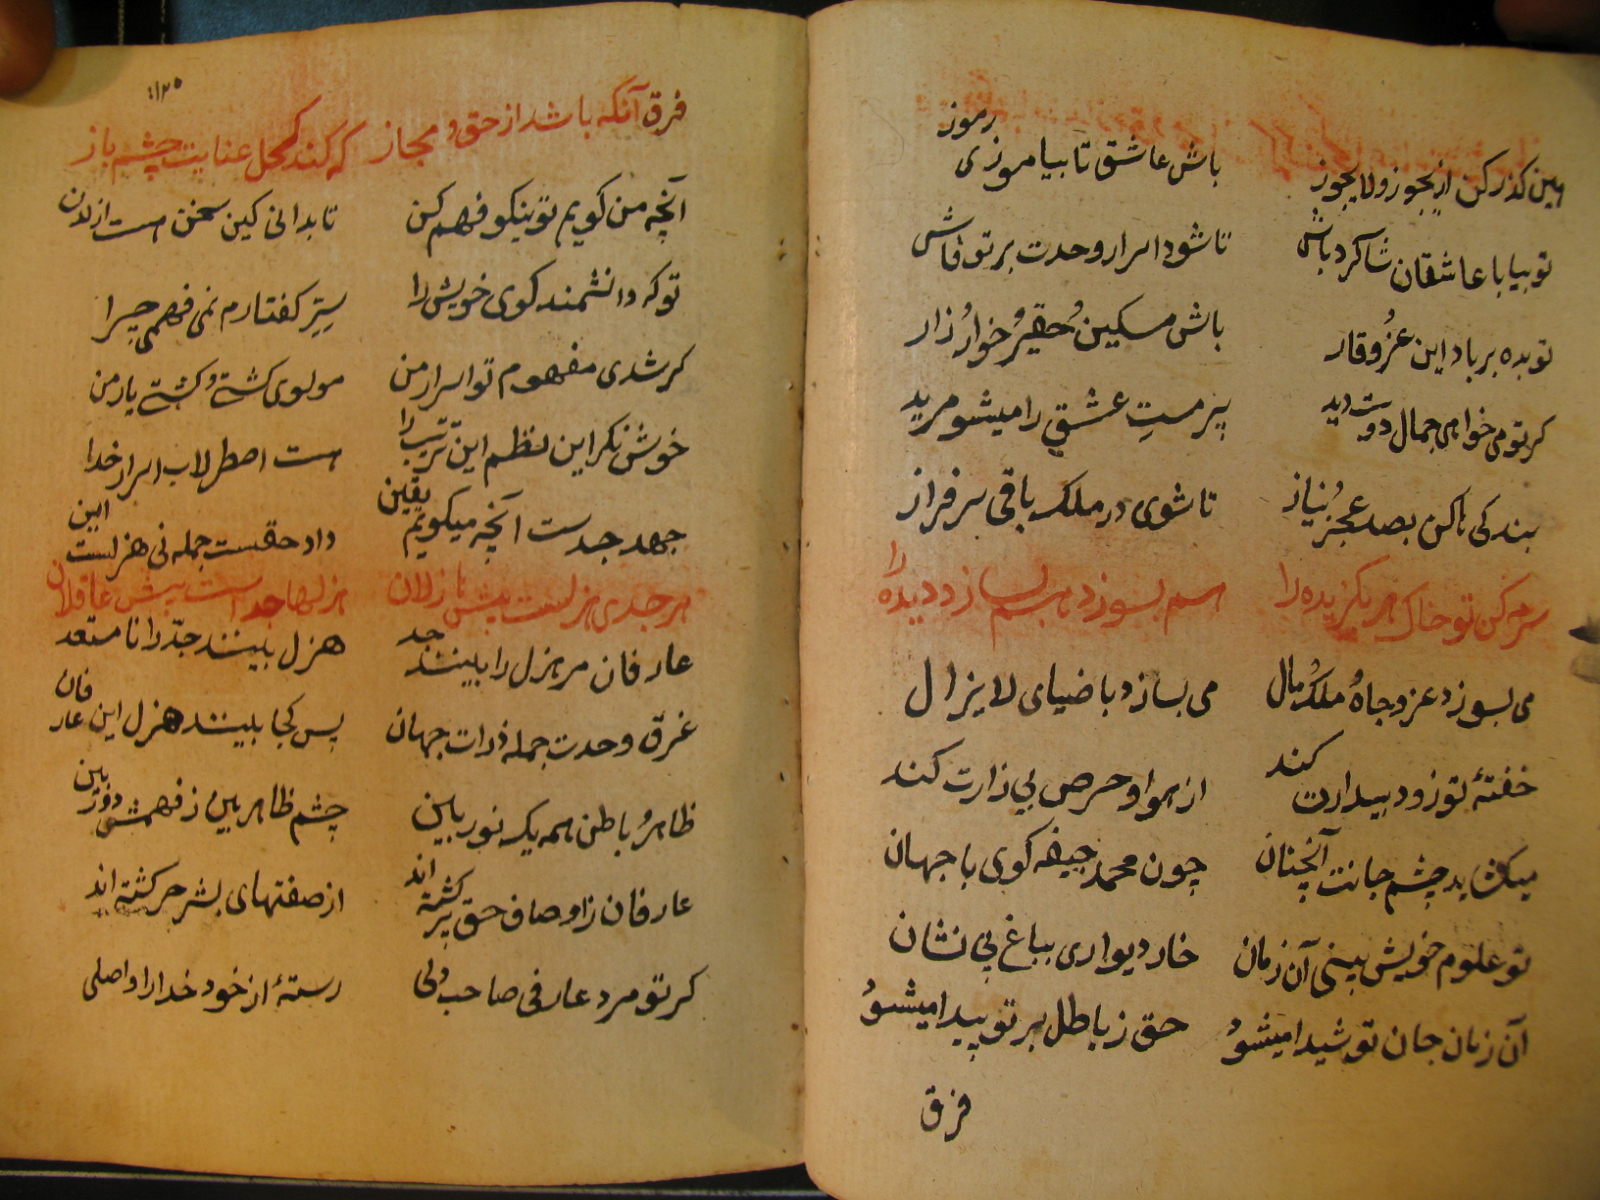 هین گذر کن از یجوز و لا یجوز باش عاشق تا بیاموزی رموز
تو بیا با عاشقان شاکرد باش تا شود اسرار وحدت بر تو فاش
تو بده بر باد این عز و وقار باش مسکین و حقیر و خوار و زار
کر تو می خواهی جمال دوست دید پیر مست عشق را میشو مرید
بندکی ها کن بصد عجز و نیاز تا شوی در ملک باقی سرفراز
سرمه کن تو خاک هر بکزیده را هم بسوزد هم بسازد دیده را
می بسوزد عز و جاه و ملک و مال می بسازد با ضیای لا یزال
خفتهٔ تو زود بیدارت کند از هوا و حرص بی زارت کند
میکشاید چشم جانت آنچنان چون محمد جیفه کوی با جهان
تو علوم خویش بینی آن زمان خار دیواری بباغ بی نشان
آن زمان جان تو شیدا میشود حق ز باطل بر تو پیدا میشود
فرق
۱۱۲۵
فرق آنکه باشد از حق و مجاز که کند کحل عنایت چشم باز
آنچه من کویم تو نیکو فهم کن تا بدانی کین سخن هست از لدن
تو که دانشمند کوی خویش را سِرّ کفتارم نمی فهمی چرا
کر شدی مفهوم تو اسرار من مولوی کشتی و کشتی یار من
خوش نکر این نظم این ترتیب را هست اصطرلاب اسرار خدا
جهد جد است آنچه میکویم یقین داد حقست جمله نی هزلست این
هر جدی هزلست پیش هازلان هزلها جد است پیش عاقلان
عارفان مر هزل را بینند جد هزل بینند جدّ را نا مستعد
غرق وحدت جمله ذرات جهان پس کجا بینند هزل این عارفان
ظاهر و باطن همه یک نور بین چشم ظاهر بین ز فهمش دوربین
عارفان ز اوصاف حق پر کشته اند از صفتهای بشر حر کشته اند
کر تو مرد عارفی صاحب دلی رستهٔ از خود خدا را واصلی